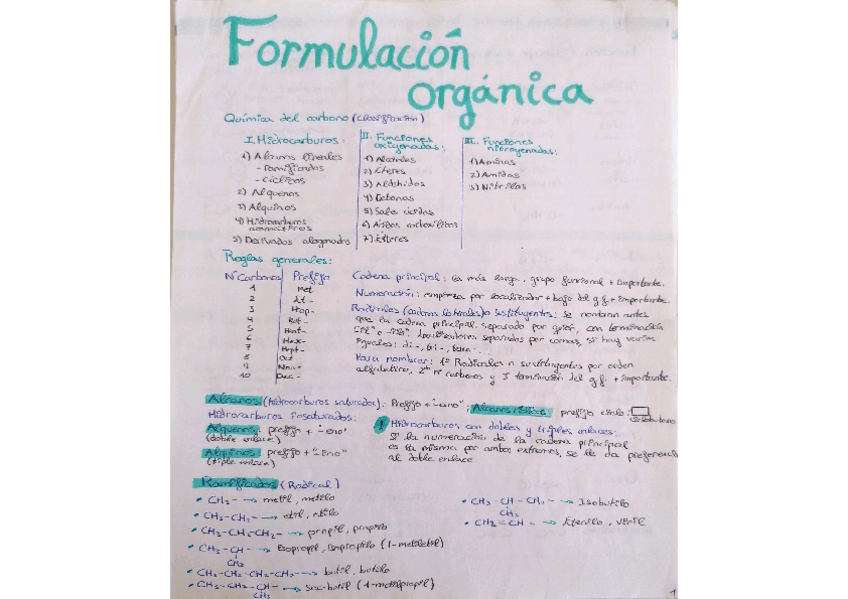 Formulación
orgánica
Química del carbono (Clasificación)
I. Hidrocarburos:
1) Alcanos lineales
- Ramificados
- Cíclicos
2) Alquenos
3) Alquinos
4) Hidrocarburos
aromáticos
5) Derivados alogenados
II. Funciones
oxigenadas:
1) Alcoholes
2) Éteres
3) Aldehídos
4) Cetonas
5) Sales ácidas
6) Ácidos carboxílicos
7) Ésteres
III. Funciones
nitrogenadas:
1) Aminas
2) Amidas
3) Nitrilos
Reglas generales:
Nº Carbonos Prefijo
1 Met
2 Et-
3 Prop-
4 But-
5 Pent-
6 Hex-
7 Hept-
8 Oct
9 Non-
10 Dec-
Cadena principal: la más larga, grupo funcional + importante.
Numeración: empieza por localizador + bajo del g.f + importante.
Radicales (cadena laterales) o sustituyentes: se nombran antes
que la cadena principal separado por guión, con terminación
"il" o "ilo". Localizadores separados por comas, si hay varios
iguales: di-, tri-, tetra-...
Para nombrar: 1º Radicales o sustituyentes por orden
alfabético, 2º nº carbonos y terminación del g.f. + importante.
Alcanos (hidrocarburos saturados): Prefijo + "-ano"; Alcanos cíclicos prefijo ciclo:
Ciclobutano
Hidrocarburos insaturados:
Alquenos prefijo + "-eno"
(doble enlace)
Alquinos prefijo + "-ino"
(triple enlace)
! Hidrocarburos con dobles y triples enlaces:
Si la numeración de la cadena principal
es la misma por ambos extremos, se le da preferencia
al doble enlace
Ramificados (Radical)
• CH3- → metil, metilo
• CH3-CH2- → etil, etilo
• CH3-CH2-CH2- → propil, propilo
• CH3-CH- → Isopropil, isopropilo (1-metiletil)
CH3
• CH3-CH2-CH2-CH2- → butil, butilo
• CH3-CH2-CH- → sec-butil (1-metilpropil)
CH3
• CH3-CH-CH2- → Isobutilo
CH3
• CH2=CH- → Etenilo, vinil
1